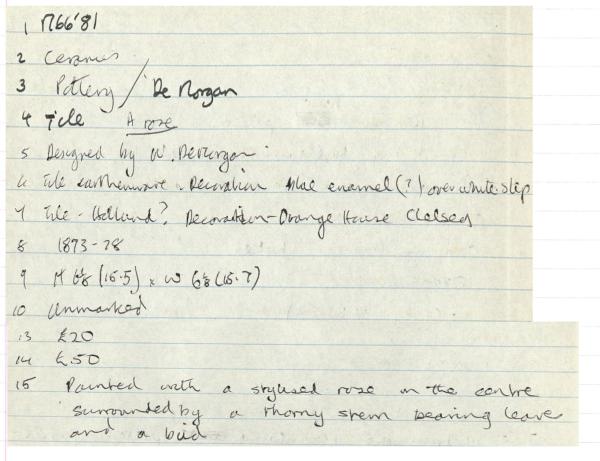 1 M66'81
2 Ceramics
3 Pottery / De Morgan
4 Tile A rose
5 Designed by W. De Morgan.
6 Tile earthenware. Decoration blue enamel (?) over white slip
7 Tile - Holland? Decoration - Orange House Chelsea
8 1873-78
9 H 6⅛ (15.5) x W 6⅛ (15.7)
10 Unmarked
13 £20
14 £50
15 Painted with a stylised rose in the centre
surrounded by a thorny stem bearing leave
and a bud